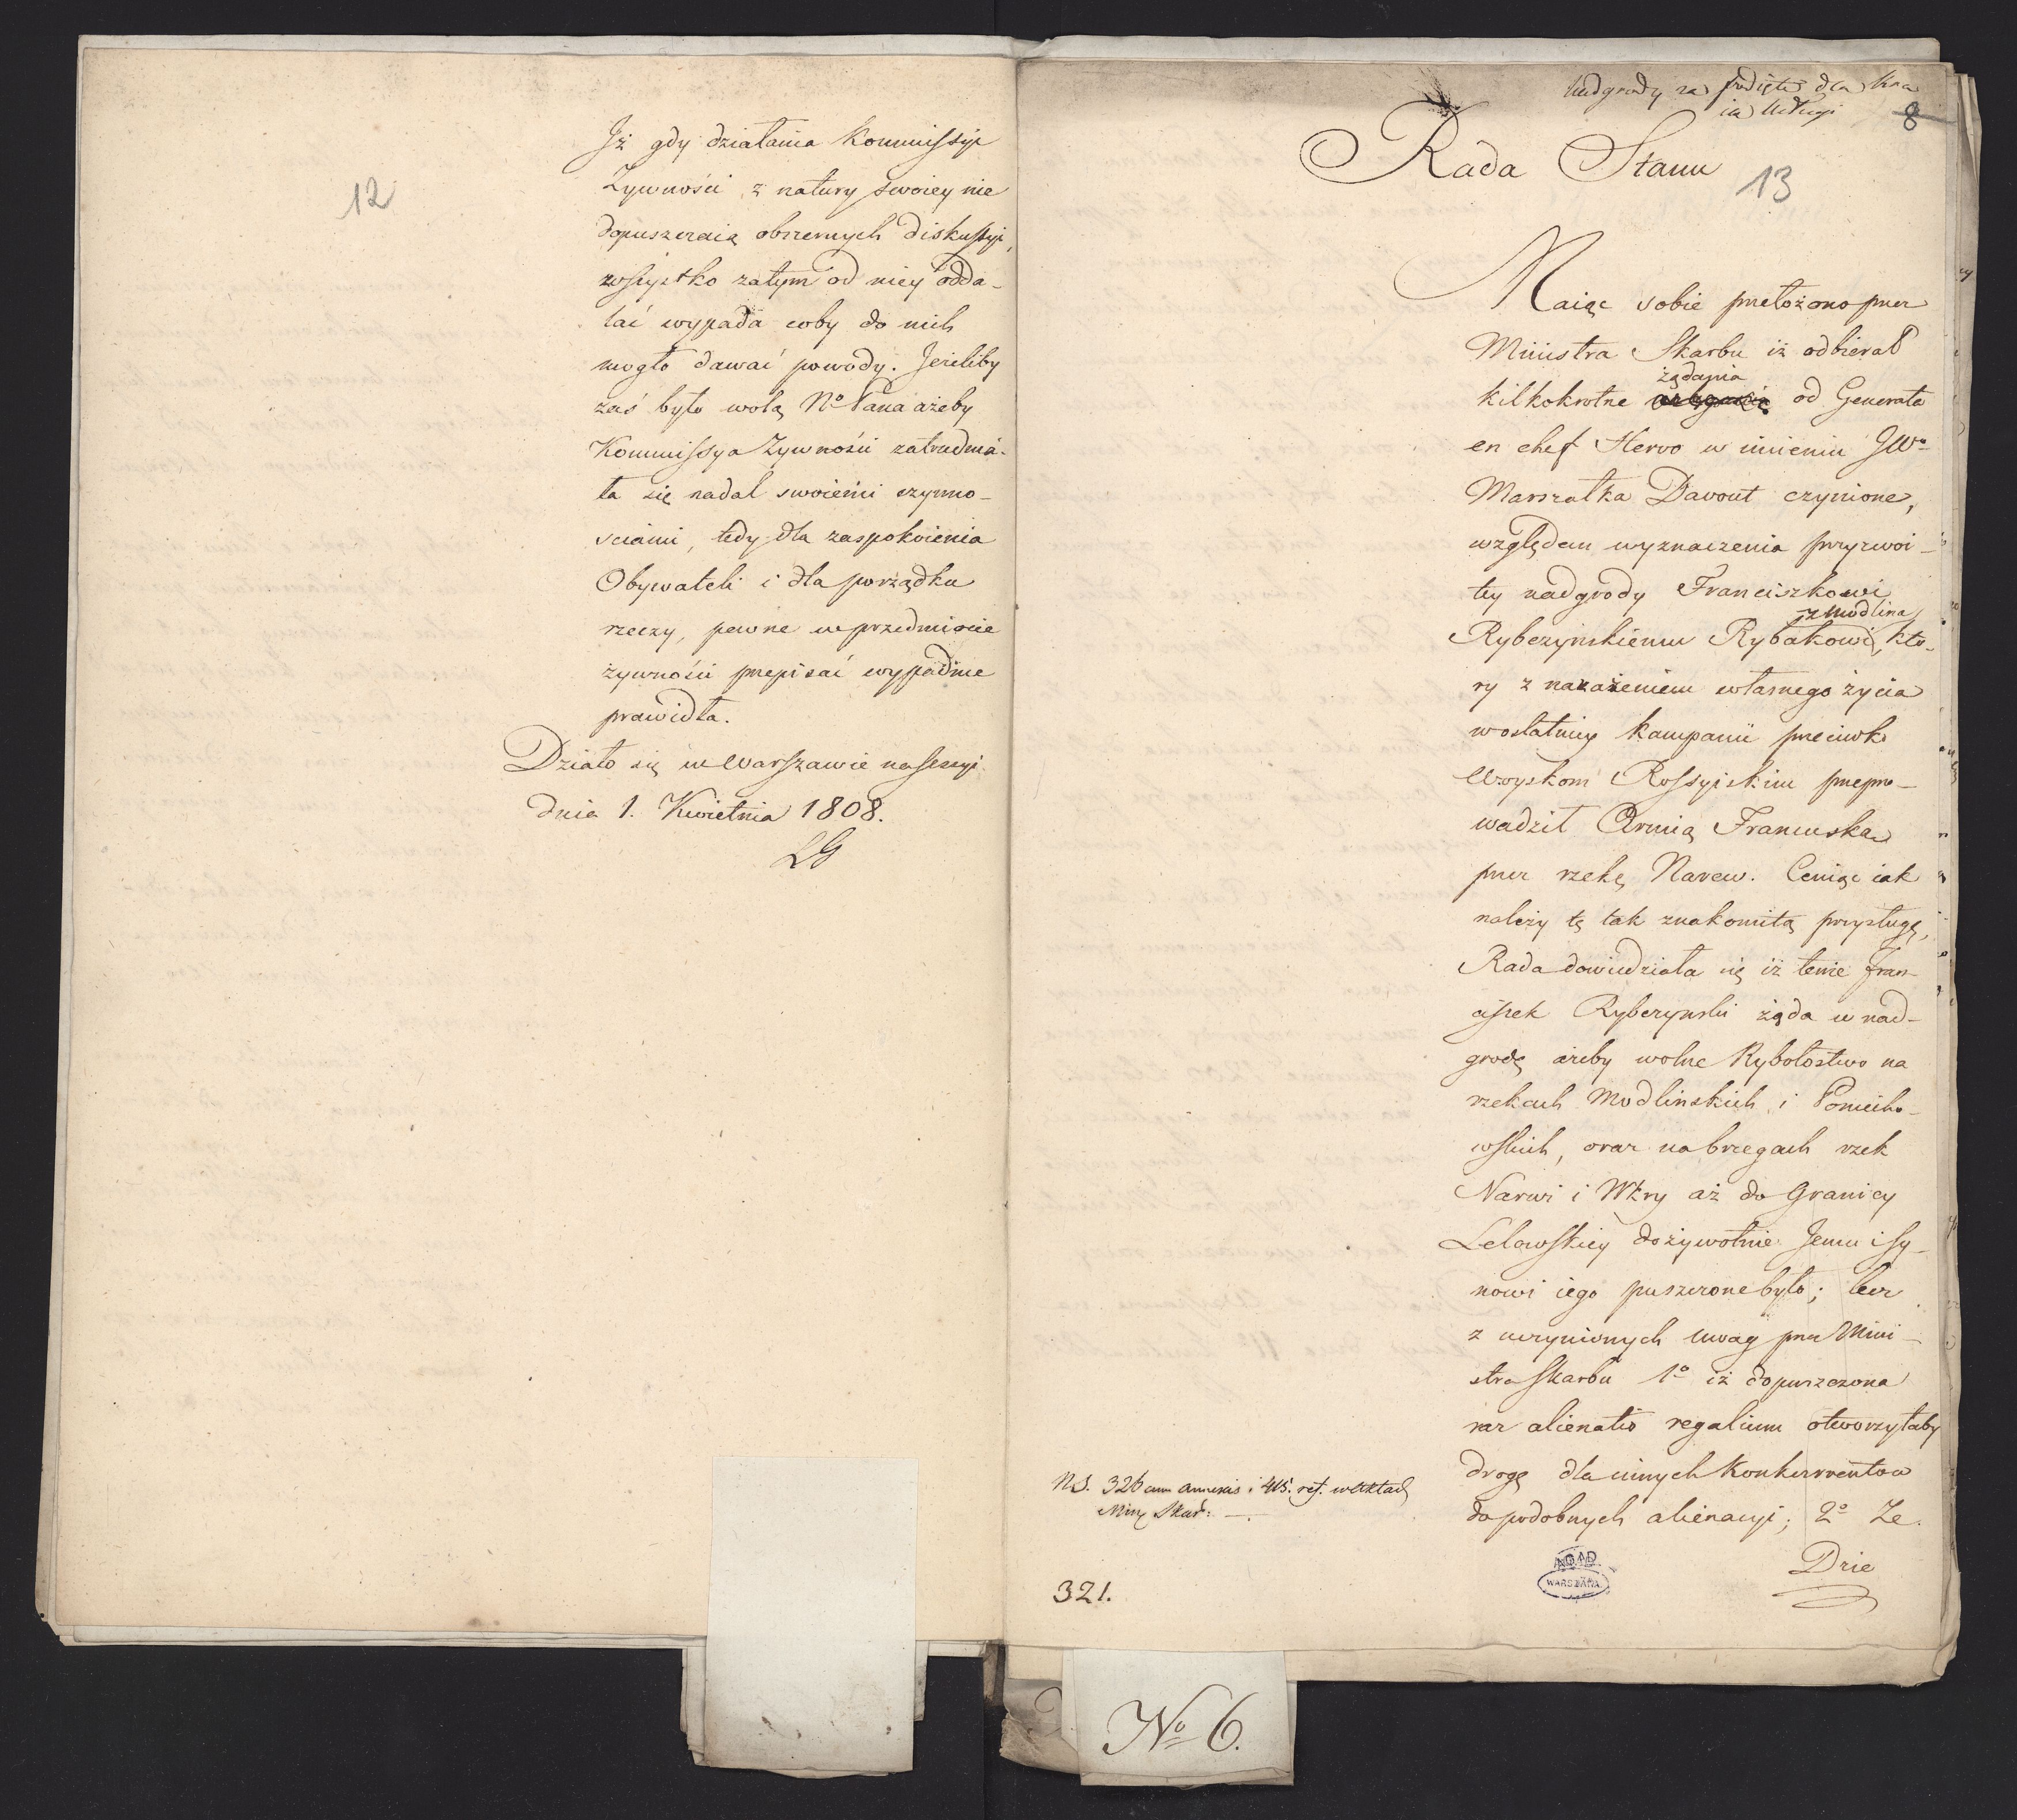 12
Iż gdy działania Kommissyi
Żywności z natury swoiey nie
dopuszczaią obszernych diskussyi,
wszystko zatym od niey odda-
lać wypada coby do nich
mogło dawać powody. Jeżeliby
zaś było wolą No Pana ażeby
Kommissya Żywności zatrudnia-
ła się nadal swoiemi czynno-
sciami, tedy dla zaspokoienia
Obywateli i dla porządku
rzeczy, pewne w przedmiocie
żywności przepisać wypadnie
prawidła.
Działo się w Warszawie na sessyi
dnia 1. Kwietnia 1808.
LG
Nadgrody za podięte dla kra
iu usługi
8
Rada Stanu
13
Maiąc sobie przełożono przez
Ministra Skarbu iż odbierał
żądania
kilkokrotne od Generała
en chef Hervo w imieniu JWo
Marszałka Davout czynione,
względem wyznaczenia przyzwoi-
tey nadgrody Franciszkowi
z Modlina
Rybczyńskiemu Rybakowi, któ-
ry z narażeniem własnego życia
w ostatniey kampanii przeciwko
Woyskom Rossyiskim przepro-
wadził Armią Francuską
przez rzekę Narew. Ceniąc iak
należy tę tak znakomitą przysługę,
Rada dowiedziała się iż tenże Fran-
ciszek Rybczynski żąda w nad-
grodę ażeby wolne Rybołostwo na
rzekach Modlinskich i Pomiecho-
wskich, oraz na brzegach rzek
Narwi i Wkry aż do Granicy
Lelowskiey dożywotnie Jemu i Sy-
nowi iego puszczone było; lecz
z uczynionych uwag przez Mini-
stra Skarbu 1o iż dopuszczona
raz alienatio regalium otworzyłaby
drogę dla innych Konkurrentów
do podobnych alienacyi; 2o Ze
Dzie
NS. 326 cum annexis i 415. ref. w aktach
Min. Skar:
321.
AGAD
WARSZAWA
No 6.